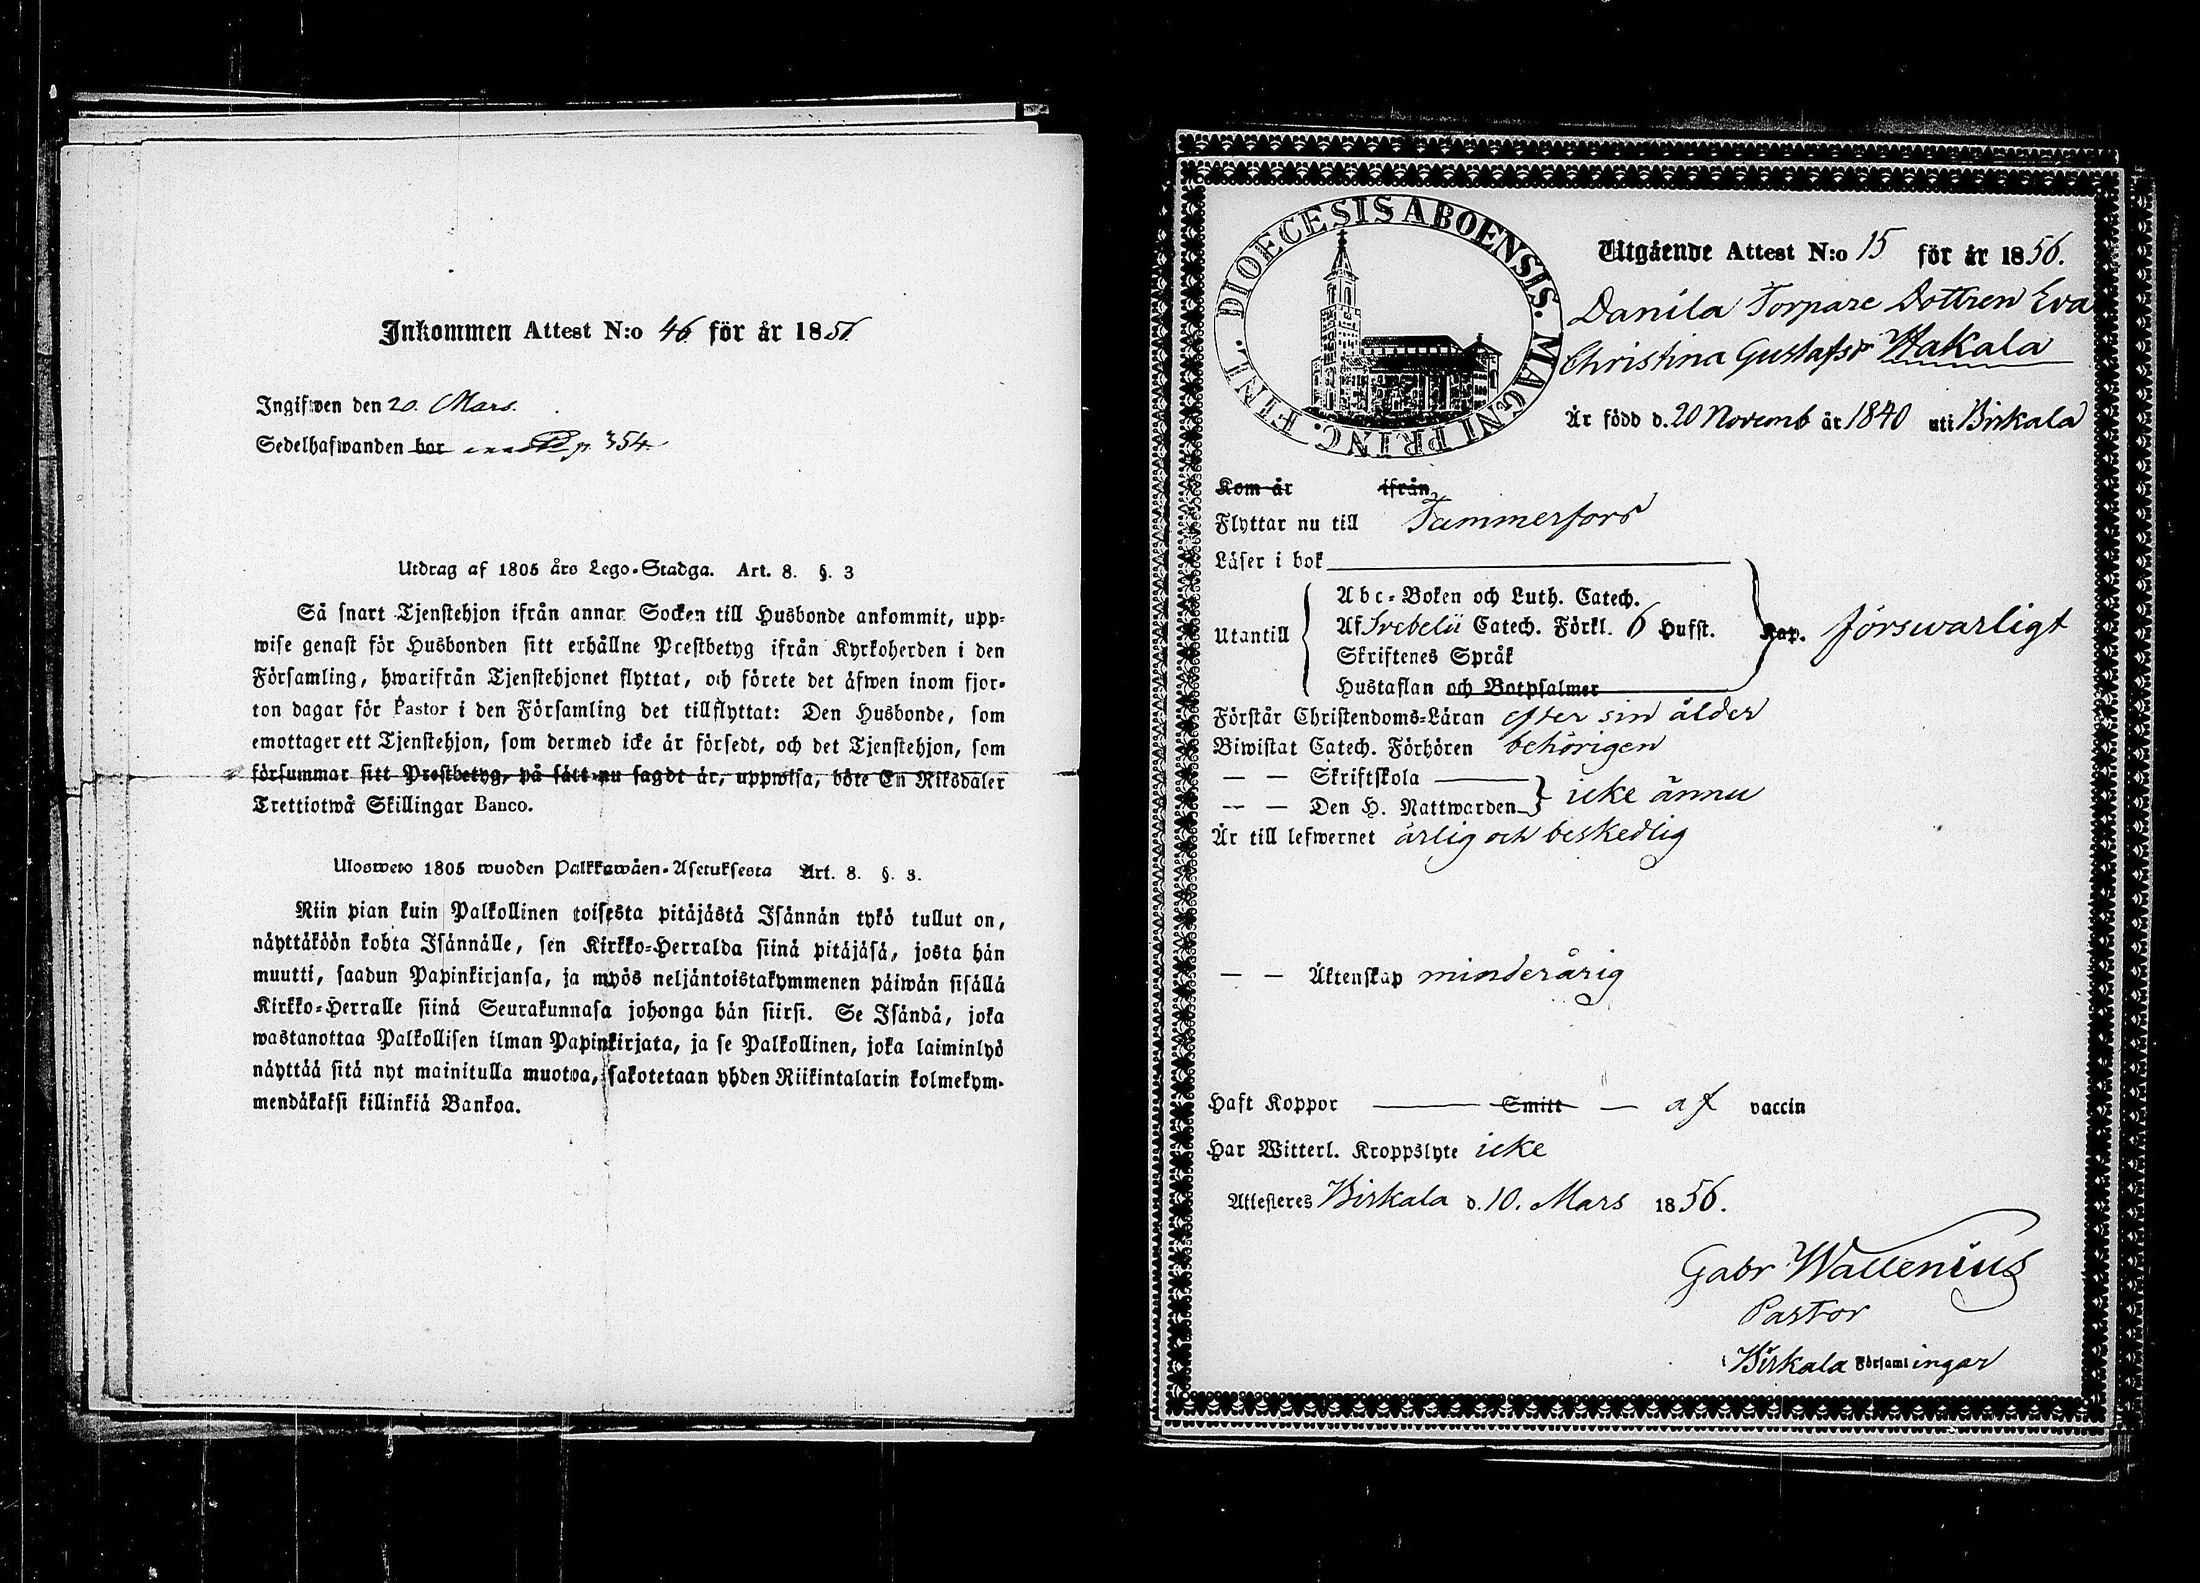 Inkommen Attest N:o 46 för år 1856
Ingifwen den 20. Mars.
Sedelhafwanden bor p. 354
Utdrag af 1805 års Lego-Stadga. Art. 8. §. 3
Så snart Tjenstehjon ifrån annar Socken till Husbonde ankommit, upp-
wise genast för Husbonden sitt erhållne Prestbetyg ifrån Kyrkoherden i den
Församling, hwarifrån Tjenstehjonet flyttat, och förete det äfwen inom fjor-
ton dagar för Pastor i den Församling det tillflyttat: Den Husbonde, som
emottager ett Tjenstehjon, som dermed icke är försedt, och det Tjenstehjon, som
försummar sitt Prestbetyg, på sätt nu sagdt är, uppwisa, böte En Riksdaler
Trettiotwå Skillingar Banco.
Ulosweto 1805 wuoden Palkkawäen-Asetuksesta Art. 8. §. 3.
Niin pian kuin Palkollinen toisesta pitäjästä Isännän tykö tullut on,
näyttäköön kohta Isännälle, sen Kirkko-Herralda siinä pitäjäsä, josta hän
muutti, saadun Papinkirjansa, ja myös neljäntoistakymmenen päiwän sisällä
Kirkko-Herralle siinä Seurakunnasa johonga hän siirsi. Se Isändä, joka
wastanottaa Palkollisen ilman Papinkirjata, ja se Palkollinen, joka laiminlyö
näyttää sitä nyt mainitulla muotoa, sakotetaan yhden Riikintalarin kolmekym-
mendäkaksi killinkiä Bankoa.
DIOECESIS ABOENSIS. MAGNI PRINC. FINL.
Utgående Attest N:o 15 för år 1856.
Danila Torpare Dottren Eva
Christina Gustafsdr Hakala
Är född d. 20 Novemb år 1840 uti Birkala
Kom år ifrån
Flyttar nu till Tammerfors
Läser i bok
Utantill
Abc-Boken och Luth. Catech.
Af Svebelii Catech. Förkl. 6 Hufst. Kap. försvarligt
Skriftenes Språk
Hustaflan och Botpsalmer
Förstår Christendoms-Läran efter sin ålder
Biwistat Catech. Förhören behörigen
— — Skriftskola
— — Den H. Nattwarden icke ännu
Är till lefwernet ärlig och beskedlig
— — Äktenskap minderårig
Haft Koppor Smitt — af vaccin
Har Witterl. Kroppslyte icke
Attesteres Birkala d. 10. Mars 1856.
Gabr Wallenius
Pastor
i Birkala Församlingar